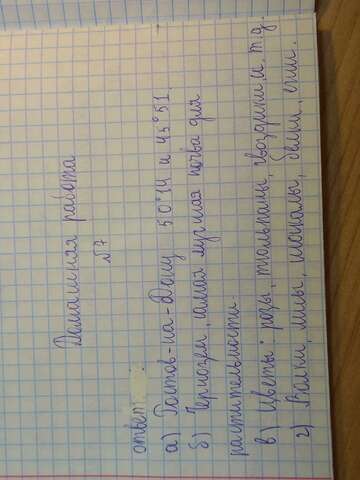 Домашняя работа
№7
ответ:
а) Ростов-на-Дону 50°14 и 45°51
б) Чернозем, самая лучшая почва для
растительности
в) Цветы: розы, тюльпаны, гвоздики, и. т.д.
г) Волки, лисы, шакалы, белки, ели.